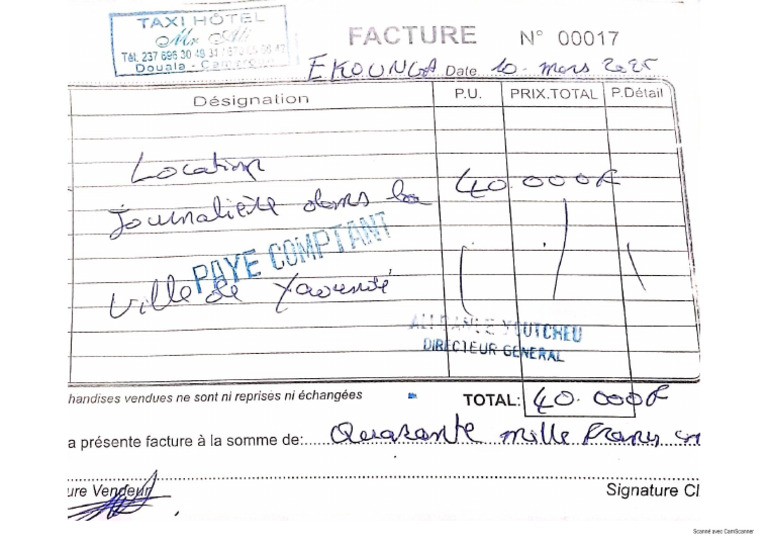 TAXI HÔTEL
Mr Ali
Tél. 237 696 30 49 31
Douala - Cameroun
FACTURE N° 00017
EKOUNGA Date 10. mars 2025
Désignation P.U. PRIX.TOTAL P.Détail
Location
Journalière dans la 40.000F
PAYE COMPTANT
Ville de Yaoundé
YOUTCHEU
DIRECTEUR GENERAL
handises vendues ne sont ni reprises ni échangées TOTAL: 40.000F
a présente facture à la somme de: Quarante mille Francs
ure Vendeur Signature Cl
Scanné avec CamScanner